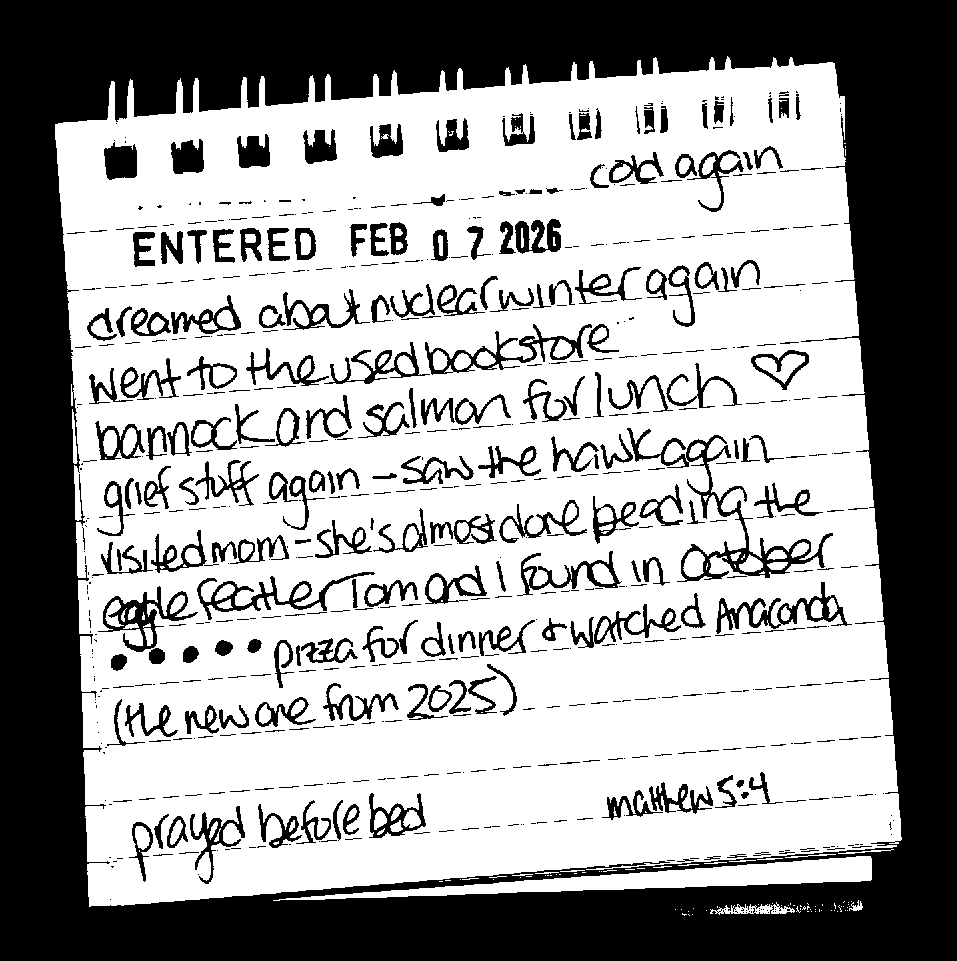 cold again
ENTERED FEB 07 2026
dreamed about nuclear winter again
went to the used bookstore
bannock and salmon for lunch ♡
grief stuff again - saw the hawk again
visited mom - she's almost done beading the
eagle feather Tom and I found in October
• • • • • pizza for dinner & watched Anaconda
(the new one from 2025)
prayed before bed
matthew 5:4